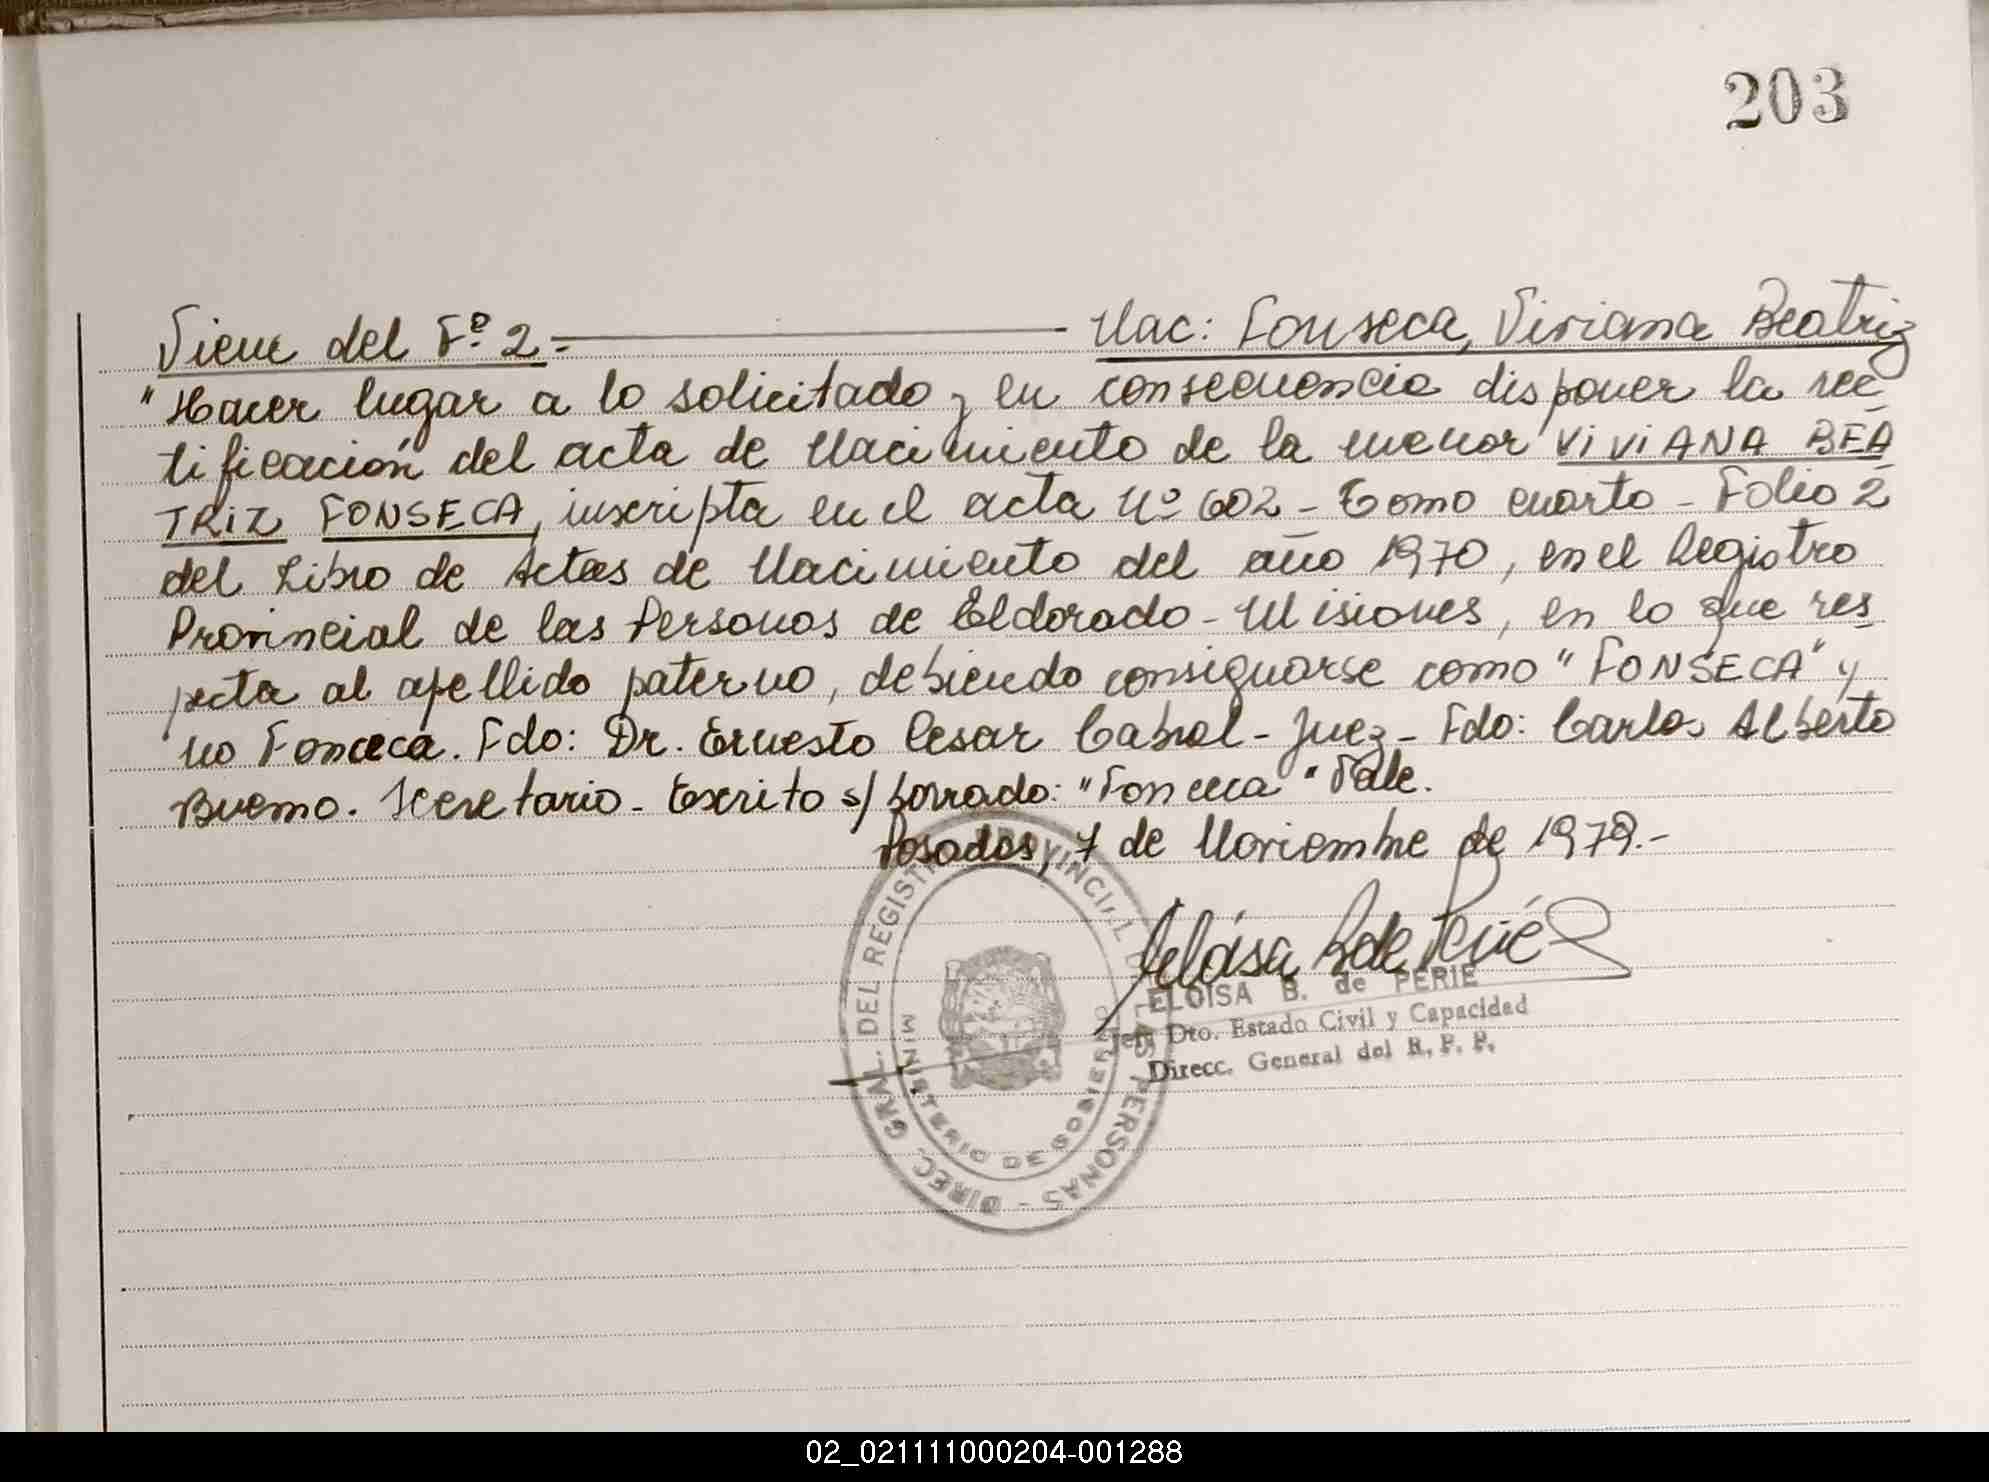 203
Viene del Fº 2.- Nac: Fonseca, Viviana Beatriz
"Hacer lugar a lo solicitado y en consecuencia disponer la rec
tificación del acta de Nacimiento de la menor VIVIANA BEA
TRIZ FONSECA, inscripta en el acta Nº 602 - Tomo cuarto - Folio 2
del Libro de Actas de Nacimiento del año 1970, en el Registro
Provincial de las Personas de Eldorado - Misiones, en lo que res
pecta al apellido paterno, debiendo consignarse como "FONSECA" y
no Fonceca. Fdo: Dr. Ernesto Cesar Cabral - Juez - Fdo: Carlos Alberto
Bueno. Secretario - Escrito s/ borrado: "Fonceca" Vale.
Posadas, 7 de Noviembre de 1979.-
Eloisa B de Perié
ELOISA B. de PERIE
Jefe Dto. Estado Civil y Capacidad
Direcc. General del R. P. P.
DIREC. GRAL. DEL REGISTRO PROVINCIAL DE LAS PERSONAS -
MINISTERIO DE GOBIERNO
02_021111000204-001288